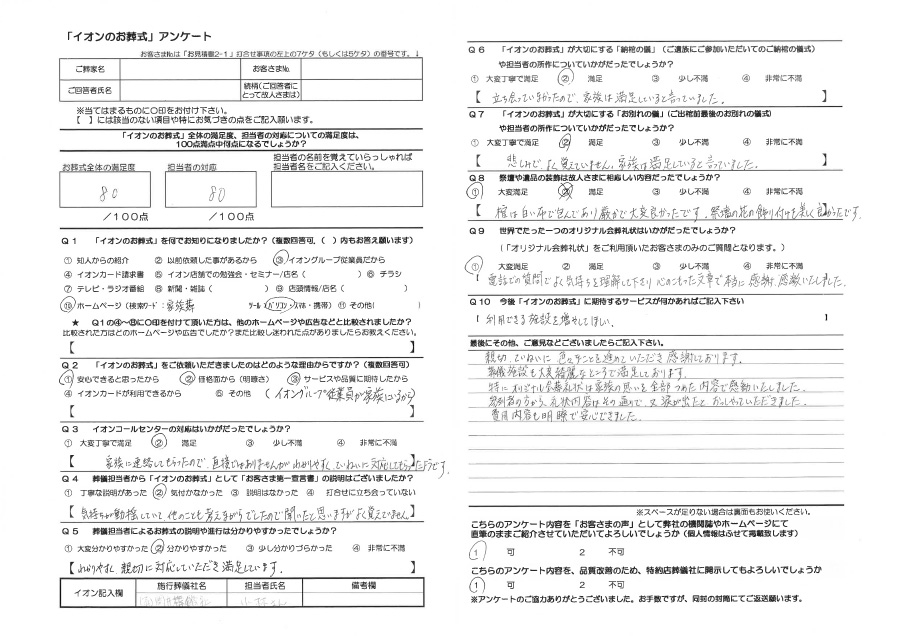 「イオンのお葬式」アンケート
お客さま№は「お見積書2-1」打合せ事項の左上の7ケタ（もしくは5ケタ）の番号です。↓
ご葬家名 お客さま№
ご回答者氏名 続柄(ご回答者にとって故人さまは)
※当てはまるものに〇印をお付け下さい。
【 】には該当のない項目や特にお気づきの点をご記入願います。
「イオンのお葬式」全体の満足度、担当者の対応についての満足度は、
100点満点中何点になるでしょうか？
お葬式全体の満足度 担当者の対応 担当者の名前を覚えていらっしゃれば
担当者名をご記入ください。
80 80
／100点 ／100点
Q1 「イオンのお葬式」を何でお知りになりましたか？（複数回答可、（ ）内もお答え願います）
① 知人からの紹介 ② 以前依頼した事があるから ③ イオングループ従業員だから
④ イオンカード請求書 ⑤ イオン店舗での勉強会・セミナー/店名（ ） ⑥ チラシ
⑦ テレビ・ラジオ番組 ⑧ 新聞・雑誌（ ） ⑬ 店頭情報/店名（ ）
⑩ ホームページ（検索ワード：家族葬 ツール（パソコン・スマホ・携帯） ⑪ その他（ ）
★ Q1の④～⑬に〇印を付けて頂いた方は、他のホームページや広告などと比較されましたか？
比較された方はどのホームページや広告でしたか？また比較し迷われた点がありましたらお教えください。
【 】
Q2 「イオンのお葬式」をご依頼いただきましたのはどのような理由からですか？（複数回答可）
① 安心できると思ったから ② 価格面から（明瞭さ） ③ サービスや品質に期待したから
④ イオンカードが利用できるから ⑤ その他 （イオングループ従業員が家族にいるから）
Q3 イオンコールセンターの対応はいかがだったでしょうか？
① 大変丁寧で満足 ② 満足 ③ 少し不満 ④ 非常に不満
【 家族に連絡してもらったので、直接ではありませんが わかりやすく、ていねいに対応してもらったようです。
Q4 葬儀担当者から「イオンのお葬式」として「お客さま第一宣言書」の説明はございましたか？
① 丁寧な説明があった ② 気付かなかった ③ 説明はなかった ④ 打合せに立ち会っていない
【 気持ちが動揺していて 他のことも考えながらでしたので聞いたと思いますがよく覚えていません】
Q5 葬儀担当者によるお葬式の説明や進行は分かりやすかったでしょうか？
① 大変分かりやすかった ② 分かりやすかった ③ 少し分かりづらかった ④ 非常に不満
【 わかりやすく 親切に対応していただき満足しています。 】
イオン記入欄 施行葬儀社名 担当者氏名 備考欄
Q6 「イオンのお葬式」が大切にする「納棺の儀」（ご遺族にご参加いただいてのご納棺の儀式）
や担当者の所作についていかがだったでしょうか？
① 大変丁寧で満足 ② 満足 ③ 少し不満 ④ 非常に不満
【 立ち会っていなかったので、家族は満足していると言っていました。 】
Q7 「イオンのお葬式」が大切にする「お別れの儀」（ご出棺前最後のお別れの儀式）
や担当者の所作についていかがだったでしょうか？
① 大変丁寧で満足 ② 満足 ③ 少し不満 ④ 非常に不満
【 悲しみでよく覚えていません。家族は満足していると言っていました。 】
Q8 祭壇や遺品の装飾は故人さまに相応しい内容だったでしょうか？
① 大変満足 ② 満足 ③ 少し不満 ④ 非常に不満
【 棺は白い布で包んであり厳かで大変良かったです。祭壇の花の飾り付けも美しく良かったです。
Q9 世界でたった一つのオリジナル会葬礼状はいかがだったでしょうか？
（「オリジナル会葬礼状」をご利用頂いたお客さまのみのご質問となります。）
① 大変満足 ② 満足 ③ 少し不満 ④ 非常に不満
電話での質問でよく気持ちを理解して下さり 心のこもった文章で本当に感謝 感激いたしました。
Q10 今後「イオンのお葬式」に期待するサービスが何かあればご記入下さい
【 利用できる施設を増やしてほしい。 】
最後にその他、ご意見などございましたらご記入下さい。
親切、ていねいに 色々なことを進めていただき 感謝しております。
葬儀施設も大変綺麗なところで満足しております。
特にオリジナル会葬礼状は家族の思いを全部つめた内容で感動いたしました。
参列者の方から、礼状内容はその通りで、又 涙が出たと おっしゃっていただきました。
費用内容も明瞭で安心できました。
※スペースが足りない場合は裏面もお使いください。
こちらのアンケート内容を「お客さまの声」として弊社の機関誌やホームページにて
直筆のままご紹介させていただいてよろしいでしょうか（個人情報はふせて掲載致します）
1 可 2 不可
こちらのアンケート内容を、品質改善のため、特約店葬儀社に開示してもよろしいでしょうか
1 可 2 不可
※アンケートのご協力ありがとうございました。お手数ですが、同封の封筒にてご返送願います。